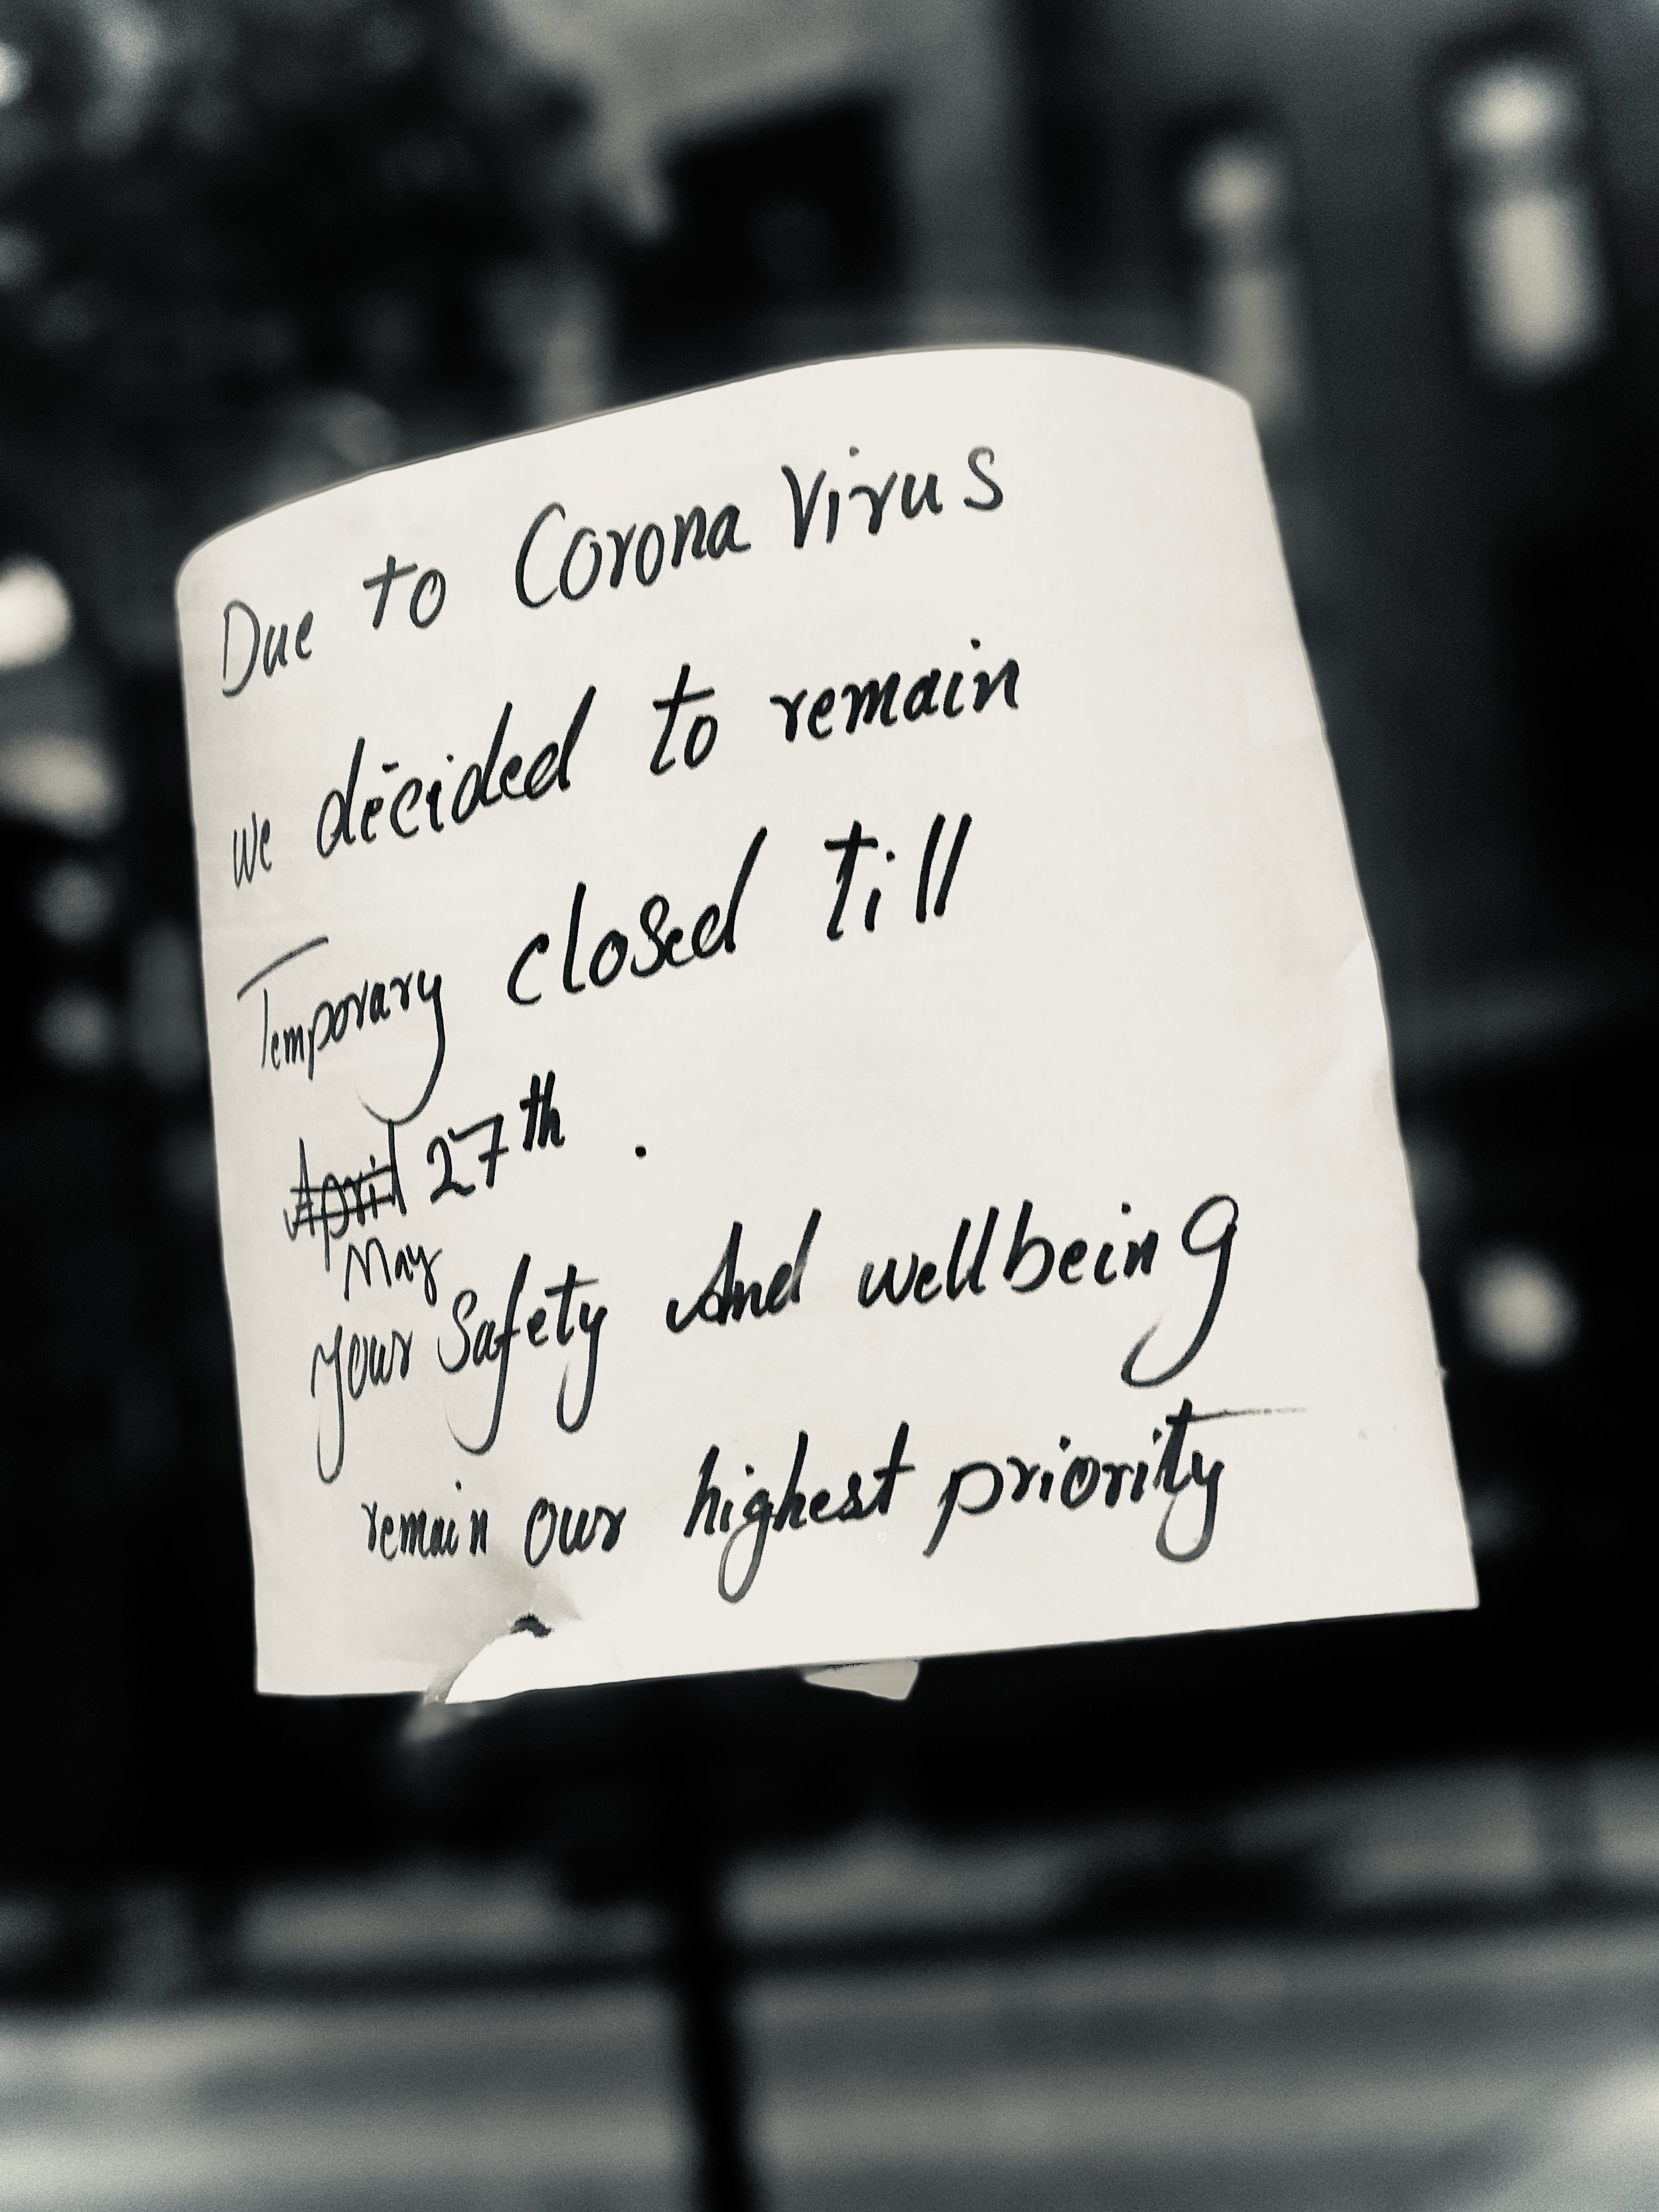 Due to Corona Virus
we decided to remain
Temporary closed till
April 27th .
May
your Safety And wellbeing
remain our highest priority